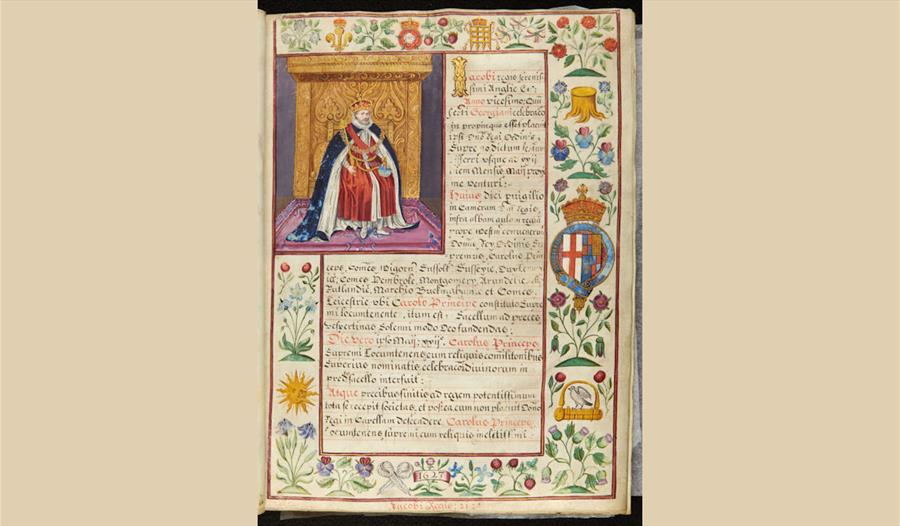 Iacobi regis serenis
simi Anglie &c:
Anno vicesimo: Qui
festi Georgiani celebraco
in propinquo esset
ipsi Regi Ordinis
Supre no dictum
differri vsque ad xxij
diem Mensis Maij prox
me venturi:
Huius diei puigilio
in Cameram regis,
infra
prope
Ordinis Su
premus, Carolus Prin
ceps, Comes, Wigorn Suffolk Sussexie,
Comes Pembroke, Montgomery, Arundelie,
Rutlandie, Marchio Buckinghamie et Comes
Leicestrie vbi Carolo Principe constituto Supre
mi locumtenente, itum est: Sacellum ad preces
vespertinas Solenni modo Deo fundendas:
Die vero ipso Maij: xxij. Carolus Princeps
Supremi Locumtenens cum reliquis comilitonibus
Superius nominatis, celebracoi diuinorum in
sacello interfuit:
Atque precibus finitis ad regem potentissimum
tota se recepit societas, et postea cum non placuit Domo
regi in Capellam descendere, Carolus Princeps
Locumtenens supremi cum reliquis
1627
Iacobi Regis: 21